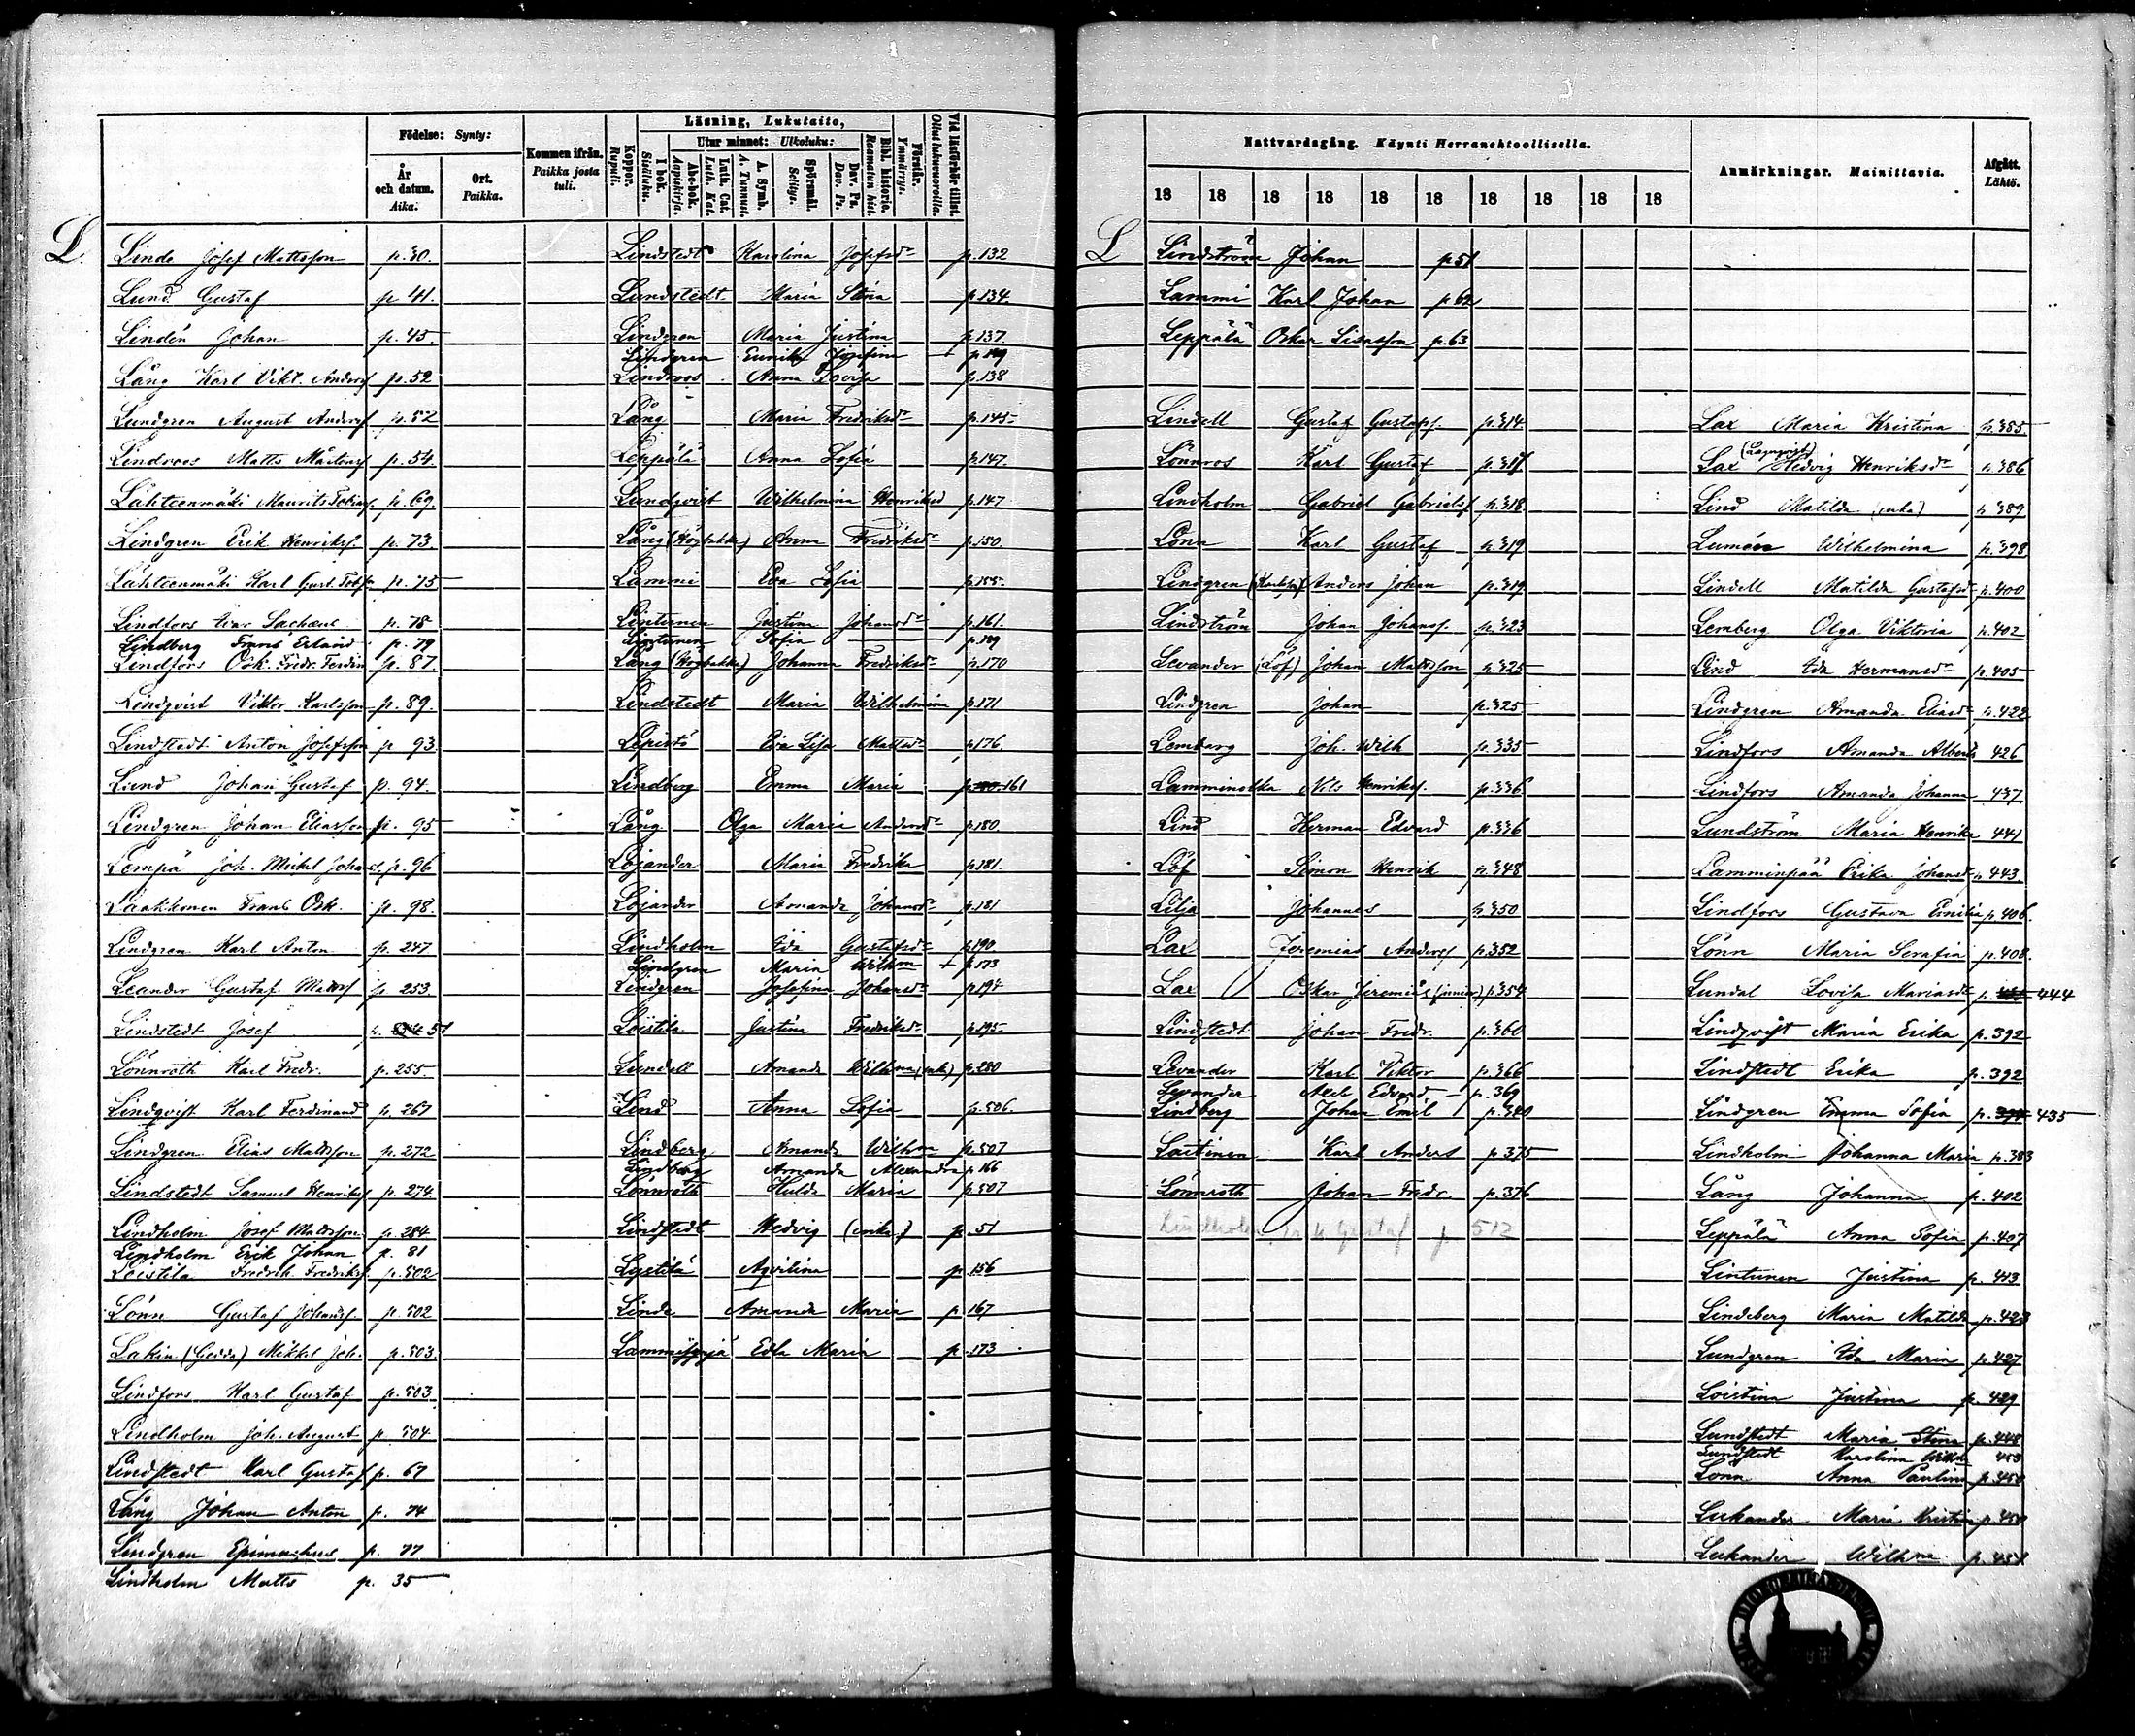 Födelse: Synty:
År och datum. Aika.
Ort. Paikka.
Kommen ifrån. Paikka josta tuli.
Koppor. Rupuli.
Läsning, Lukutaito,
I bok. Sisäluku.
Utur minnet: Ulkoluku:
Abc-bok. Aapiskirja.
Luth. Cat. Luth. Kat.
A. Symb. A. Tunnust.
Spörsmål. Selitys.
Dav. Ps. Dav. Ps.
Bibl. historie. Raamatun hist.
Förstår. Ymmärrys.
Vid läsförhör tillst. Ollut lukuvuoroilla.
L.
Linde Josef Mattsson p. 30.
Lund Gustaf p 41.
Lindén Johan p. 45
Lång Karl Vikt. Andersf p. 52
Lundgren August Andersf p. 52
Lindroos Matts Mårtensf p. 54.
Lähteenmäki Maurits Tobiasf. p. 69.
Lindgren Erik Henriksf. p. 73.
Lähteenmäki Karl Gust. p. 75
Lindfors p. 78
Lindberg Frans Erland p. 79
Lindfors Osk. Fredr. Ferdin p. 87.
Lindqvist Viktor Karlsson p. 89.
Lindstedt Anton Josefsson p 93.
Lund Johan Gustaf p. 94.
Lindgren Johan Eliasson p. 95
Lempä Joh. Mikel Johans. p. 96
Laakkonen Frans Osk. p. 98.
Lindgren Karl Anton p. 247
Leander Gustaf Mattsf p. 253.
Lindstedt Josef p. 51
Lönnroth Karl Fredr. p. 255.
Lindqvist Karl Ferdinand p. 267
Lindgren Elias Mattsson p. 272
Lindstedt Samuel Henriksf p. 274.
Lindholm Josef Mattsson p. 284
Lindholm Erik Johan p. 81
Loistila Fredrik Fredriksf. p. 502
Lönn Gustaf Johansf. p. 502
Lakin (Gedda) Mikkel Joh. p. 503.
Lindfors Karl Gustaf p. 503
Lindholm Joh. August p. 504
Lindstedt Karl Gustaf p. 67
Lång Johan Anton p. 74
Lindgren Epimachus p. 77
Lindholm Matts p. 35
Lindstedt Karolina Josefsdr p. 132
Lundstedt Maria Stina p 134.
Lindgren Maria Justina p. 137
Lindgren Eunika Josefina + p 149
Lindroos Anna Lovisa p. 138
Lång Maria Fredriksdr p. 145
Leppälä Anna Sofia p. 147.
Lundqvist Wilhelmina Henriksd p. 147
Lång (Högbakka) Anna Fredriksdr p. 150.
Lammi Eva Sofia p. 155.
Lintunen Justina Johansdr p. 161.
Lintunen Sofia
Lång (Högbakka) Johanna Fredriksdr p. 170
Lindstedt Maria Wilhelmina p 171
Lepistö Eva Lisa Mattsdr p 176.
Lindberg Emma Maria 161
Lång Olga Maria Andersdr p. 180.
Lojander Maria Fredrika p. 181.
Lojander Amanda Johansdr p. 181
Lindholm Ida Gustafsdr p 190
Lindgren Maria Wilhna + p 173
Lindgren Josefina Johansdr
Loistila Justina Fredriksdr p. 195
Lundell Amanda Wilhma (enka) p. 280
Lind Anna Sofia p. 506.
Lindberg Amanda Wilhna p. 507
Lindberg Amanda Alexandra p 166
Lönnroth Hulda Maria p. 507
Lindstedt Hedvig (enka) p. 51
Lystilä Aqvilina p 156
Linde Amanda Maria p. 167
Edla Maria p. 173
Nattvardsgång. Käynti Herranehtoollisella.
18 18 18 18 18 18 18 18 18 18
Anmärkningar. Mainittavia.
Afgått. Lähtö.
L
Lindström Johan p 51
Lammi Karl Johan p 62
Leppälä Oskar p. 63
Lindell Gustaf Gustafsf. p. 314
Lönnros Karl Gustaf p. 317
Lindholm Gabriel Gabrielsf p. 318
Lönn Karl Gustaf p. 319
Lindgren (Karlsson) Anders Johan p. 319
Lindström Johan Johansf. p. 323
Levander (Löf) Johan Mattsson p. 325
Lindgren Johan p. 325
Lemberg Joh. Wilh p. 335
Lamminolka Nils Henriksf. p. 336
Lind Herman Edvard p. 336
Löf Simon Henrik p. 348
Lilja Johannes p. 350
Lax Jeremias Andersf p. 352
Lax Oskar Jeremias (junior) p. 354
Lindstedt Johan Fredr. p. 360
Levander Karl Viktor p. 366
Levander Axel Edvard p. 369
Lindberg Johan Emil p. 340
Laitinen Karl Anders p. 375
Lönnroth Johan Fredr. p. 376
Lindholm Gustaf p 512
Lax Maria Kristina p. 385
Lax (Lagqvist) Hedvig Henriksdr p. 386
Lind Matilda (enka) p 389
Lumén Wilhelmina p. 398
Lindell Matilda Gustafsdr p. 400
Lemberg Olga Viktoria p. 402
Lind Ida Hermansdr p. 405
Lindgren Amanda Eliasdr p. 422
Lindfors Amanda Albertina 426
Lindfors Amanda Johanna 437
Lundström Maria Henrika 441
Lamminpää Erika Johansdr p 443.
Lindfors Gustava Emilia p. 406.
Lönn Maria Serafia p. 408.
Lundal Lovisa Mariasdr p. 444
Lindqvist Maria Erika p. 392
Lindstedt Erika p. 392
Lindgren Emma Sofia p. 394 435
Lindholm Johanna Maria p. 383
Lång Johanna p. 402
Leppälä Anna Sofia p. 407
Lintunen Justina p. 413
Lindeberg Maria Matilda p. 423
Lundgren Ida Maria p. 427
Loistina Justina p. 429
Lundstedt Maria Stina p. 448
Lundstedt Karolina 453
Lönn Anna Paulina p. 450
Lukander Maria Kristina p. 450
Lukander Wilhna p. 451